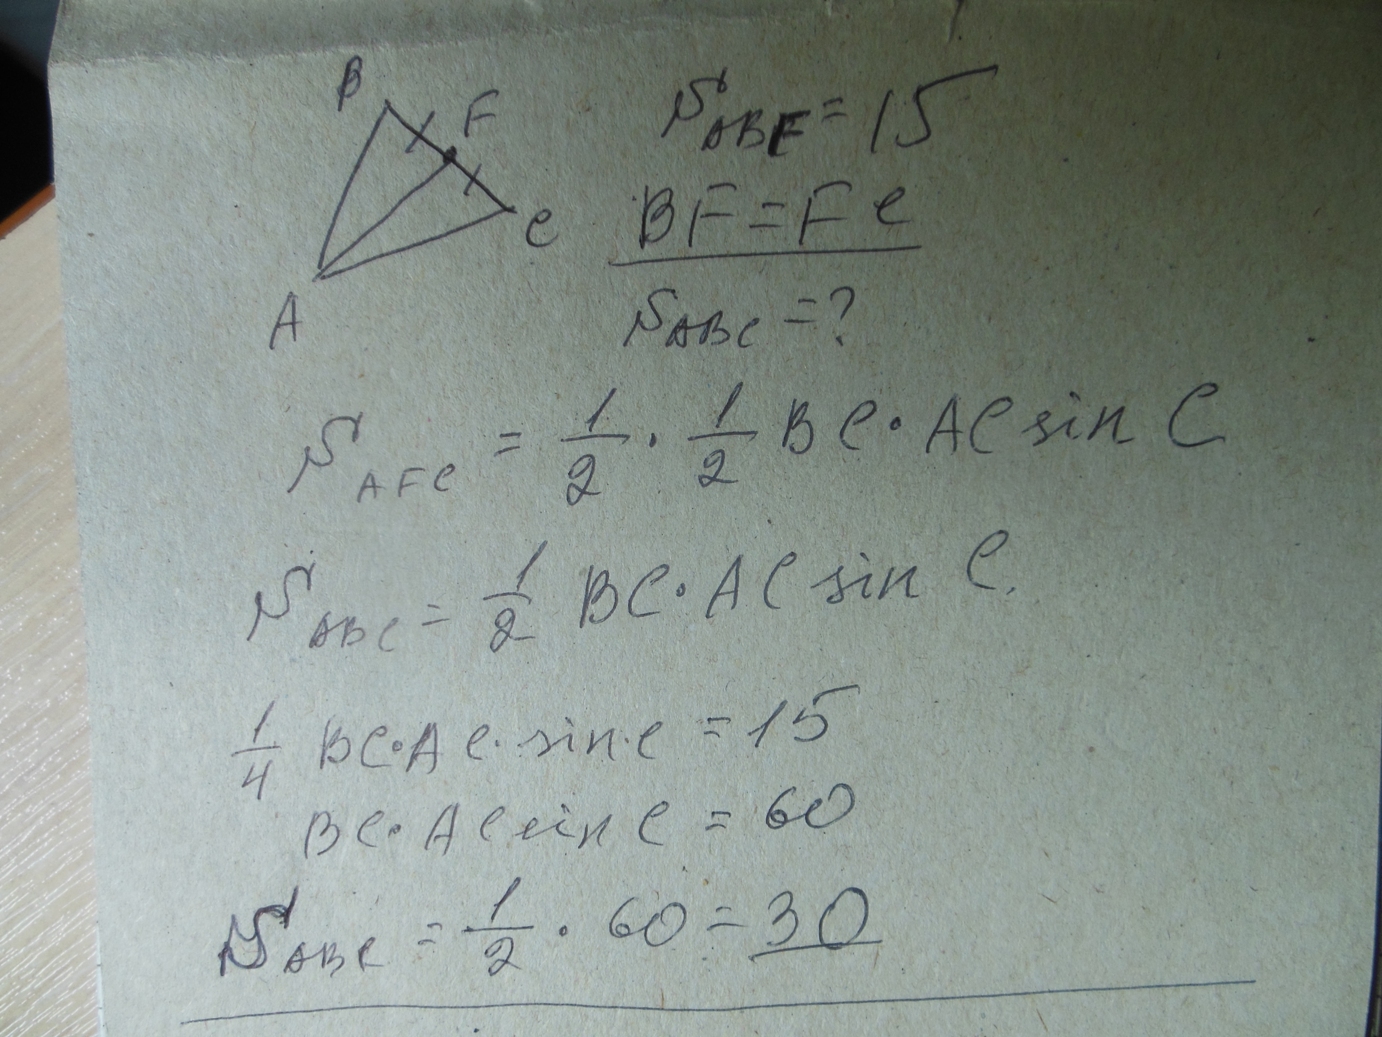 B
F
C
A
S_ABF = 15
BF = FC
S_ABC = ?
S_AFC = 1/2 · 1/2 BC · AC sin C
S_ABC = 1/2 BC · AC sin C.
1/4 BC · AC · sin · C = 15
BC · AC sin C = 60
S_ABC = 1/2 · 60 = 30